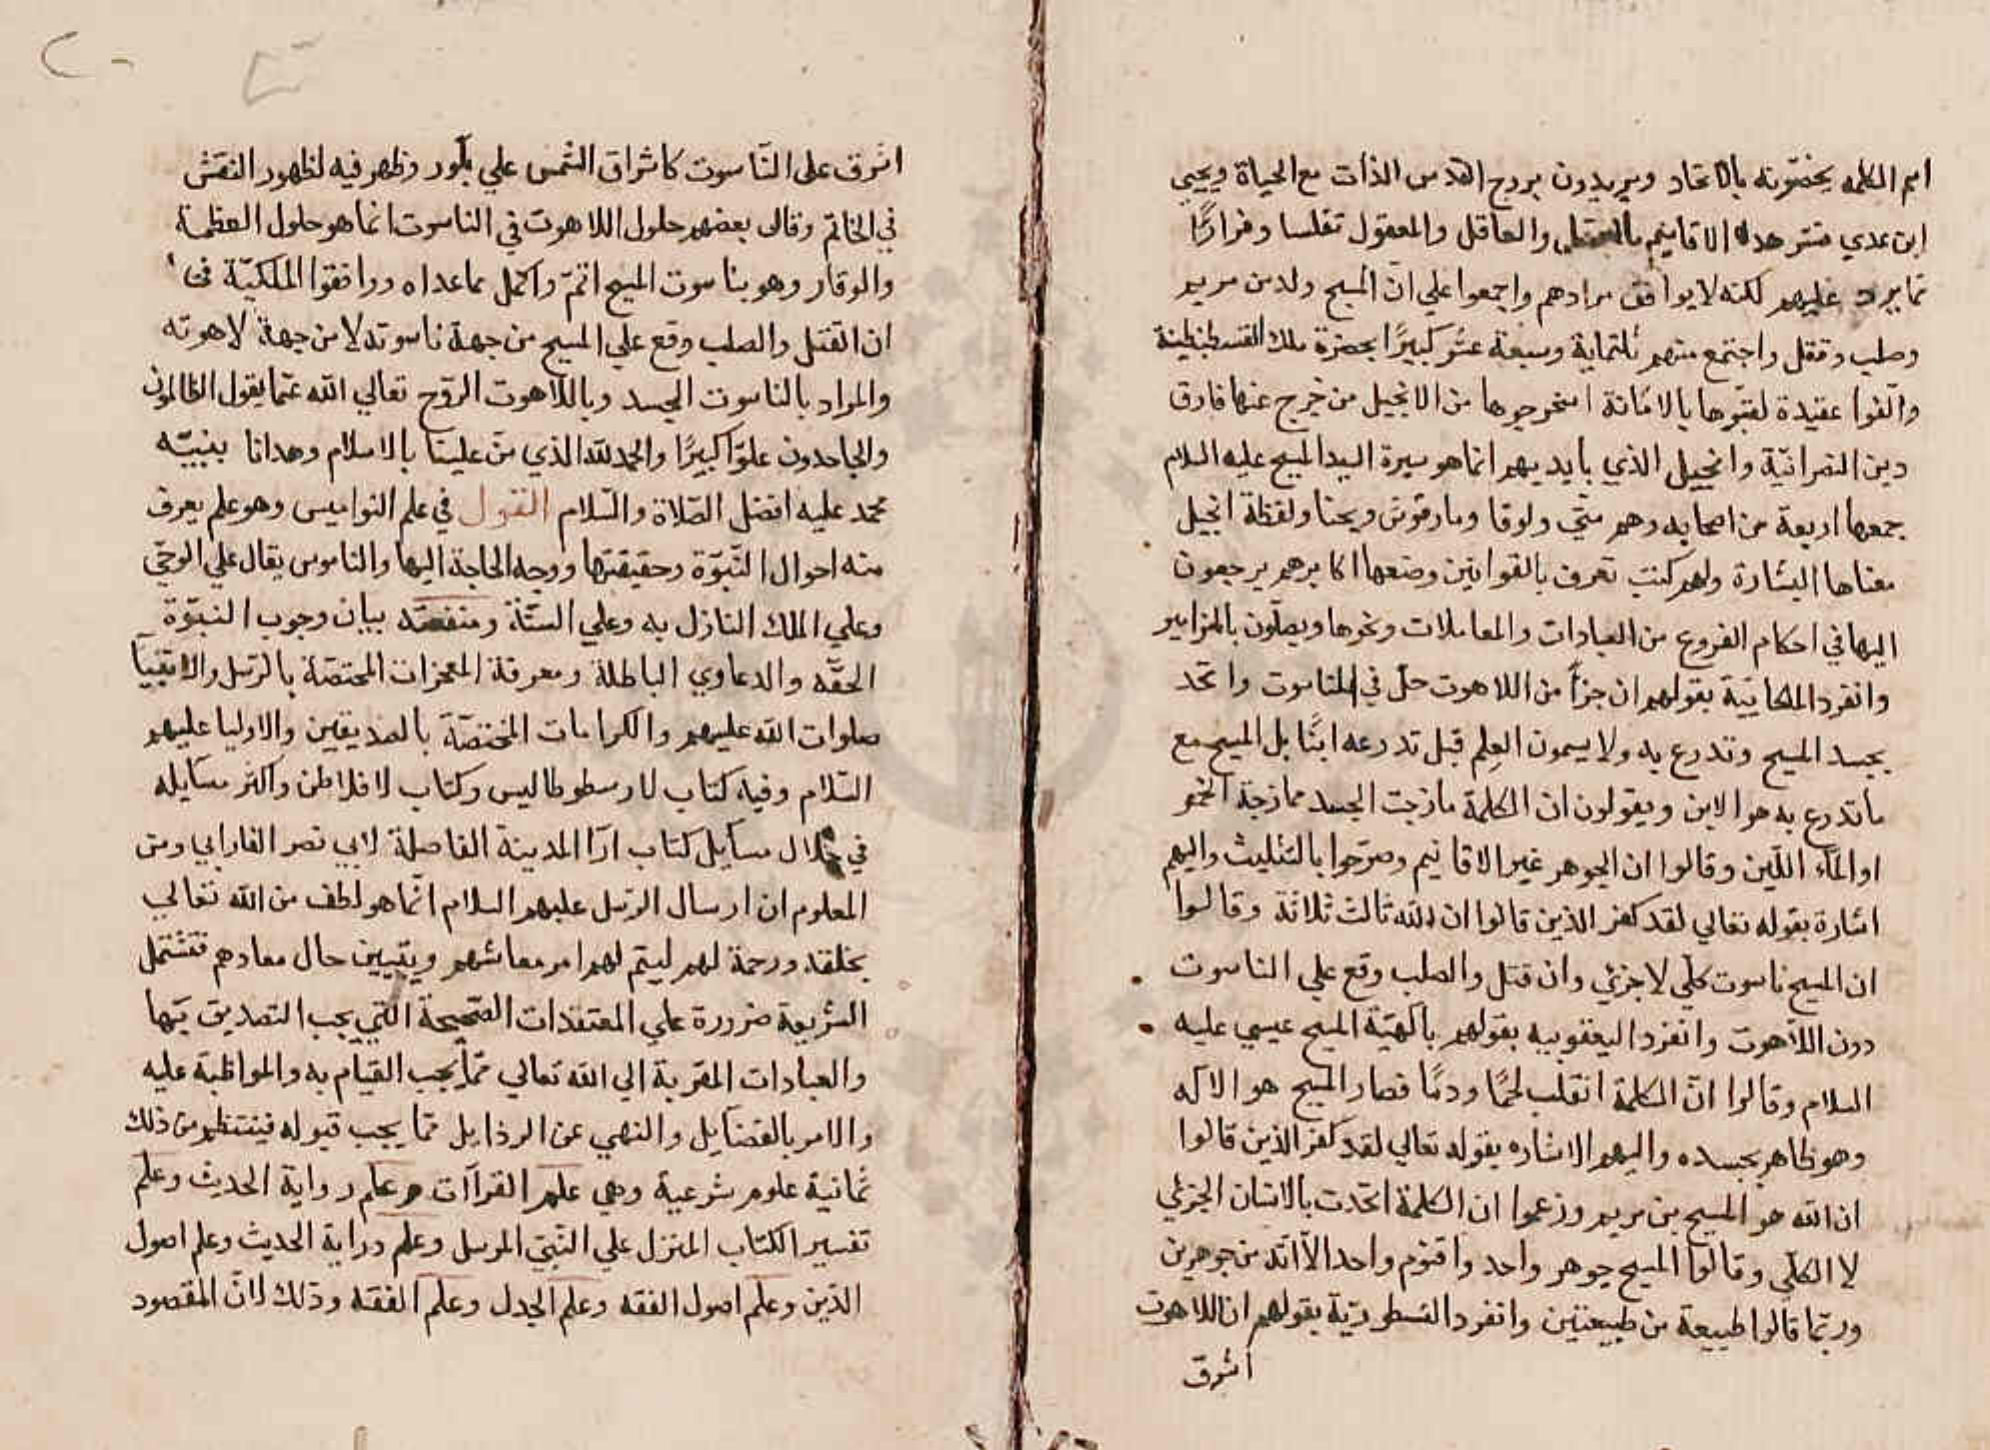 اسم الكلمه يخصّونه بالاتحاد ويريدون بروح القدس الذات مع الحياة ويحيي
ابن عدي فسّر هذه الاقانيم بالعقل والعاقل والمعقول تفلسا وفرارًا
مما يرد عليهم لكنه لا يوافق مرادهم واجمعوا علي انّ المسيح ولد من مريم
وصلب وقتل واجتمع منهم ثلثماية وسبعة عشر كبيرًا بحضرة ملك القسطنطينة
والّفوا عقيدة لقبّوها بالامانة استخرجوها من الانجيل من خرج عنها فارق
دين النصرانيّة وانجيل الذي بايديهم انما هو سيرة السيد المسيح عليه السلام
جمعها اربعة من اصحابه وهم متّي ولوقا ومارقوش ويحنا ولفظة انجيل
معناها البشارة ولهم كتب تعرف بالقوانين وضعها اكابرهم يرجعون
اليها في احكام الفروع من العبادات والمعاملات ونحوها ويصلّون بالمزامير
وانفرد الملكانيّة بقولهم ان جزأً من اللاهوت حلّ في الناسوت واتحد
بجسد المسيح وتدرع به ولا يسمون العِلم قبل تدرعه ابنًا بل المسيح مع
ما تدرع به هو الابن ويقولون ان الكلمة مازجت الجسد ممازجة الخمر
او الماء اللّبن وقالوا ان الجوهر غير الاقانيم وصرّحوا بالتثليث واليهم
اشارة بقوله تعالي لقد كفر الذين قالوا ان الله ثالث ثلاثة وقالوا
ان المسيح ناسوت كلّي لا جزئي وان قتل والصلب وقع علي الناسوت
دون اللاهوت وانفرد اليعقوبيه بقولهم بآلهيّة المسيح عيسي عليه
السلام وقالوا انّ الكلمة انقلب لحمًا ودمًا فصار المسيح هو الاله
وهو ظاهر بجسده واليهم الاشاره بقوله تعالي لقد كفر الذين قالوا
ان الله هو المسيح بن مريم وزعموا ان الكلمة اتحدت بالانسان الجزئي
لا الكلّي وقالوا المسيح جوهر واحد واقنوم واحد الّا انّه من جوهرين
وربّما قالوا طبيعة من طبيعتين وانفرد النسطوريّة بقولهم ان اللاهوت
اشرق
اشرق علي النّاسوت كاشراق الشمس علي بلّور وظهر فيه لظهور النقش
في الخاتم وقال بعضهم حلول اللاهوت في الناسوت انما هو حلول العظمة
والوقار وهو بناسوت المسيح اتمّ واكمل مما عداه ووافقوا الملكيّة في
ان القتل والصلب وقع علي المسيح من جهة ناسوته لا من جهة لاهوته
والمراد بالناسوت الجسد وباللاهوت الروّح تعالي الله عمّا يقول الظالمون
والجاحدون علوّا كبيرًا والحمد لله الذي منّ علينا بالاسلام وهدانا بنبيّه
محمد عليه افضل الصّلاة والسّلام القول في علم النواميس وهو علم يعرف
منه احوال النّبوّة وحقيقتها ووجه الحاجة اليها والناموس يقال علي الوحيّ
وعلي الملك النازل به وعلي السّنّة ومنفعته بيان وجوب النبوّة
الحقّه والدعاوي الباطلة ومعرفة المعجزات المختصّة بالرسل والانبيآ
صلوات الله عليهم والكرامات المختصّة بالصديقين والاوليا عليهم
السّلام وفيه كتاب لارسطوطاليس وكتاب لافلاطن واكثر مسآيله
في خلال مسآيل كتاب ارآ المدينة الفاصلة لابي نصر الفارابي ومن
المعلوم ان ارسال الرسل عليهم السلام انّما هو لطف من الله تعالي
بخلقه ورحمة لهم ليتم لهم امر معاشهم ويتبين حال معادهم فتشتمل
الشريعة ضرورة علي المعتقدات الصّحيحة الّتي يجب التصديق بها
والعبادات المقربة الي الله تعالي ممّا يجب القيام به والمواظبة عليه
والامر بالفضآيل والنهي عن الرذايل ممّا يجب قبوله فينتظم من ذلك
ثمانية علوم شرعية وهي علم القرآات وعلم رواية الحديث وعلم
تفسير الكتاب المنزل علي النّبيّ المرسل وعلم دراية الحديث وعلم اصول
الدّين وعلم اصول الفقه وعلم الجدل وعلم الفقه وذلك لانّ المقصود